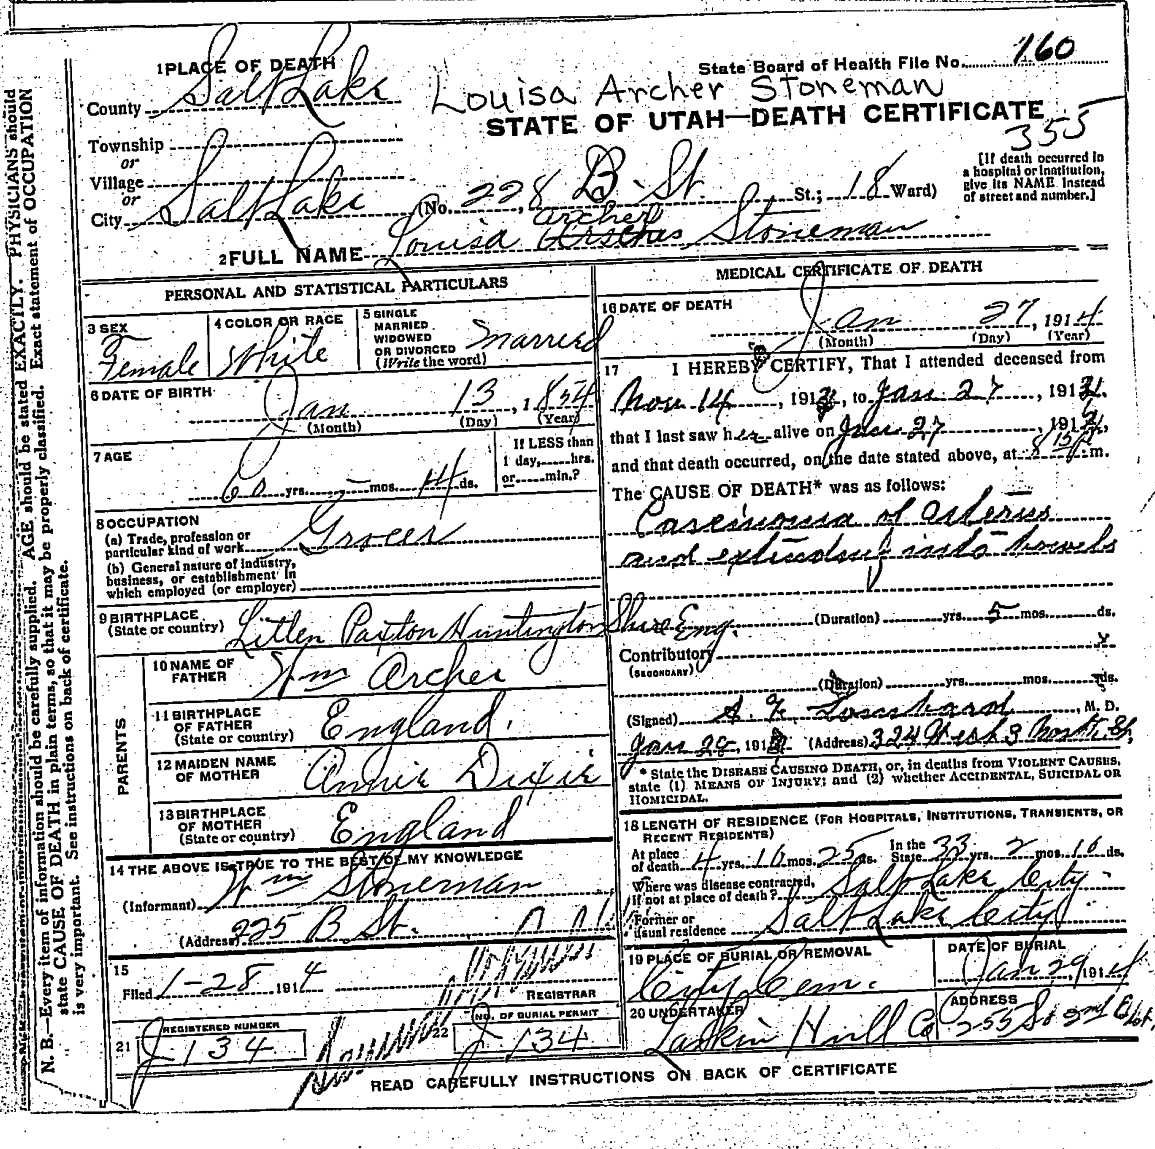 N. B.—Every item of information should be carefully supplied. AGE should be stated EXACTLY. PHYSICIANS should
state CAUSE OF DEATH in plain terms, so that it may be properly classified. Exact statement of OCCUPATION
is very important. See instructions on back of certificate.
1 PLACE OF DEATH
State Board of Health File No. 160
County Salt Lake
Louisa Archer Stoneman
STATE OF UTAH—DEATH CERTIFICATE
355
Township
or
Village
or
City Salt Lake (No. 228 B. St. St.; 18 Ward)
[If death occurred in
a hospital or institution,
give its NAME instead
of street and number.]
archer
2 FULL NAME Louisa Stoneman
PERSONAL AND STATISTICAL PARTICULARS
3 SEX
Female
4 COLOR OR RACE
White
5 SINGLE
MARRIED
WIDOWED
OR DIVORCED
(Write the word)
Married
6 DATE OF BIRTH
Jan 13, 1854
(Month) (Day) (Year)
7 AGE
60 yrs. - mos. 14 ds.
If LESS than
1 day, hrs.
or min.?
8 OCCUPATION
(a) Trade, profession or
particular kind of work Grocer
(b) General nature of industry,
business, or establishment in
which employed (or employer)
9 BIRTHPLACE
(State or country) Litlen Paxton Huntington Shire Eng.
PARENTS
10 NAME OF
FATHER Wm Archer
11 BIRTHPLACE
OF FATHER
(State or country) England.
12 MAIDEN NAME
OF MOTHER Annie Dixie
13 BIRTHPLACE
OF MOTHER
(State or country) England
14 THE ABOVE IS TRUE TO THE BEST OF MY KNOWLEDGE
(Informant) Wm Stoneman
(Address) 225 B St.
15
Filed 1-28 1914
REGISTRAR
21 REGISTERED NUMBER
J 134
22 NO. OF BURIAL PERMIT
J-134
MEDICAL CERTIFICATE OF DEATH
16 DATE OF DEATH
Jan 27, 1914
(Month) (Day) (Year)
17 I HEREBY CERTIFY, That I attended deceased from
Nov 14, 191, to Jan 27, 191
that I last saw her alive on Jan 27, 191,
and that death occurred, on the date stated above, at 8 m.
The CAUSE OF DEATH* was as follows:
Carcinoma of Uterus
and extending into bowels
(Duration) yrs. 5 mos. ds.
Contributory
(SECONDARY)
(Duration) yrs. mos. ds.
(Signed) M. D.
Jan 28, 191 (Address) 324 West 3 North St.
* State the DISEASE CAUSING DEATH, or, in deaths from VIOLENT CAUSES,
state (1) MEANS OF INJURY; and (2) whether ACCIDENTAL, SUICIDAL OR
HOMICIDAL.
18 LENGTH OF RESIDENCE (FOR HOSPITALS, INSTITUTIONS, TRANSIENTS, OR
RECENT RESIDENTS)
At place
of death 4 yrs. 10 mos. 25 ds. In the
State 33 yrs. 2 mos. 10 ds.
Where was disease contracted,
if not at place of death? Salt Lake City
Former or
usual residence Salt Lake City
19 PLACE OF BURIAL OR REMOVAL
City Cem.
DATE OF BURIAL
Jan 29, 1914
20 UNDERTAKER
Larkin Hull Co
ADDRESS
255 So 2nd East.
READ CAREFULLY INSTRUCTIONS ON BACK OF CERTIFICATE